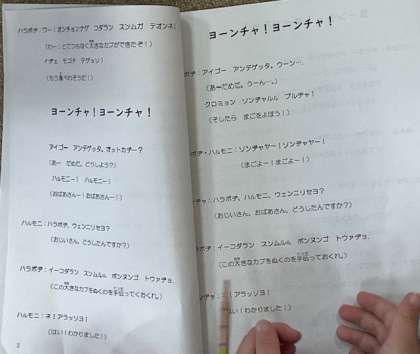 ハラボヂ：ウー！オンチョンナゲ コダラン スンムガ テオンネ！
（わー！とてつもなく大きなカブができたぞ！）
イヂェ モゴド テゲッソ！
（もう食べれそうだ！）
ヨーンチャ！ヨーンチャ！
アイゴー アンデゲッタ。オットカヂー？
（あー だめだ。どうしよう？）
ハルモニー！ ハルモニー！
（おばあさんー！おばあさんー！）
ハルモニ：ハラボヂ、ウェンニリセヨ？
（おじいさん、どうしたんですか？）
ハラボヂ：イーコダラン スンムルル ポンヌンゴ トワヂョ.
（この大きなカブをぬくのを手伝ってくおくれ。）
ハルモニ：ネ！アラッソヨ！
（はい！わかりました！）
2
ヨーンチャ！ヨーンチャ！
ボヂ：アイゴー アンデゲッタ。ウーン…
（あーだめだな。うーん…。）
クロミョン ソンヂャルル プルヂャ！
（そしたら まごをよぼう！）
ボヂ・ハルモニ：ソンヂャヤー！ソンヂャヤー！
（まごよー！まごよー！）
ヂャ：ハラボヂ、ハルモニ、ウェンニリセヨ？
（おじいさん、おばあさん、どうしたんですか？）
ボヂ：イーコダラン スンムルル ポンヌンゴ トワヂョ.
（この大きなカブをぬくのを手伝っておくれ。）
ンヂャ：ネ！アラッソヨ！
はい！わかりました！）